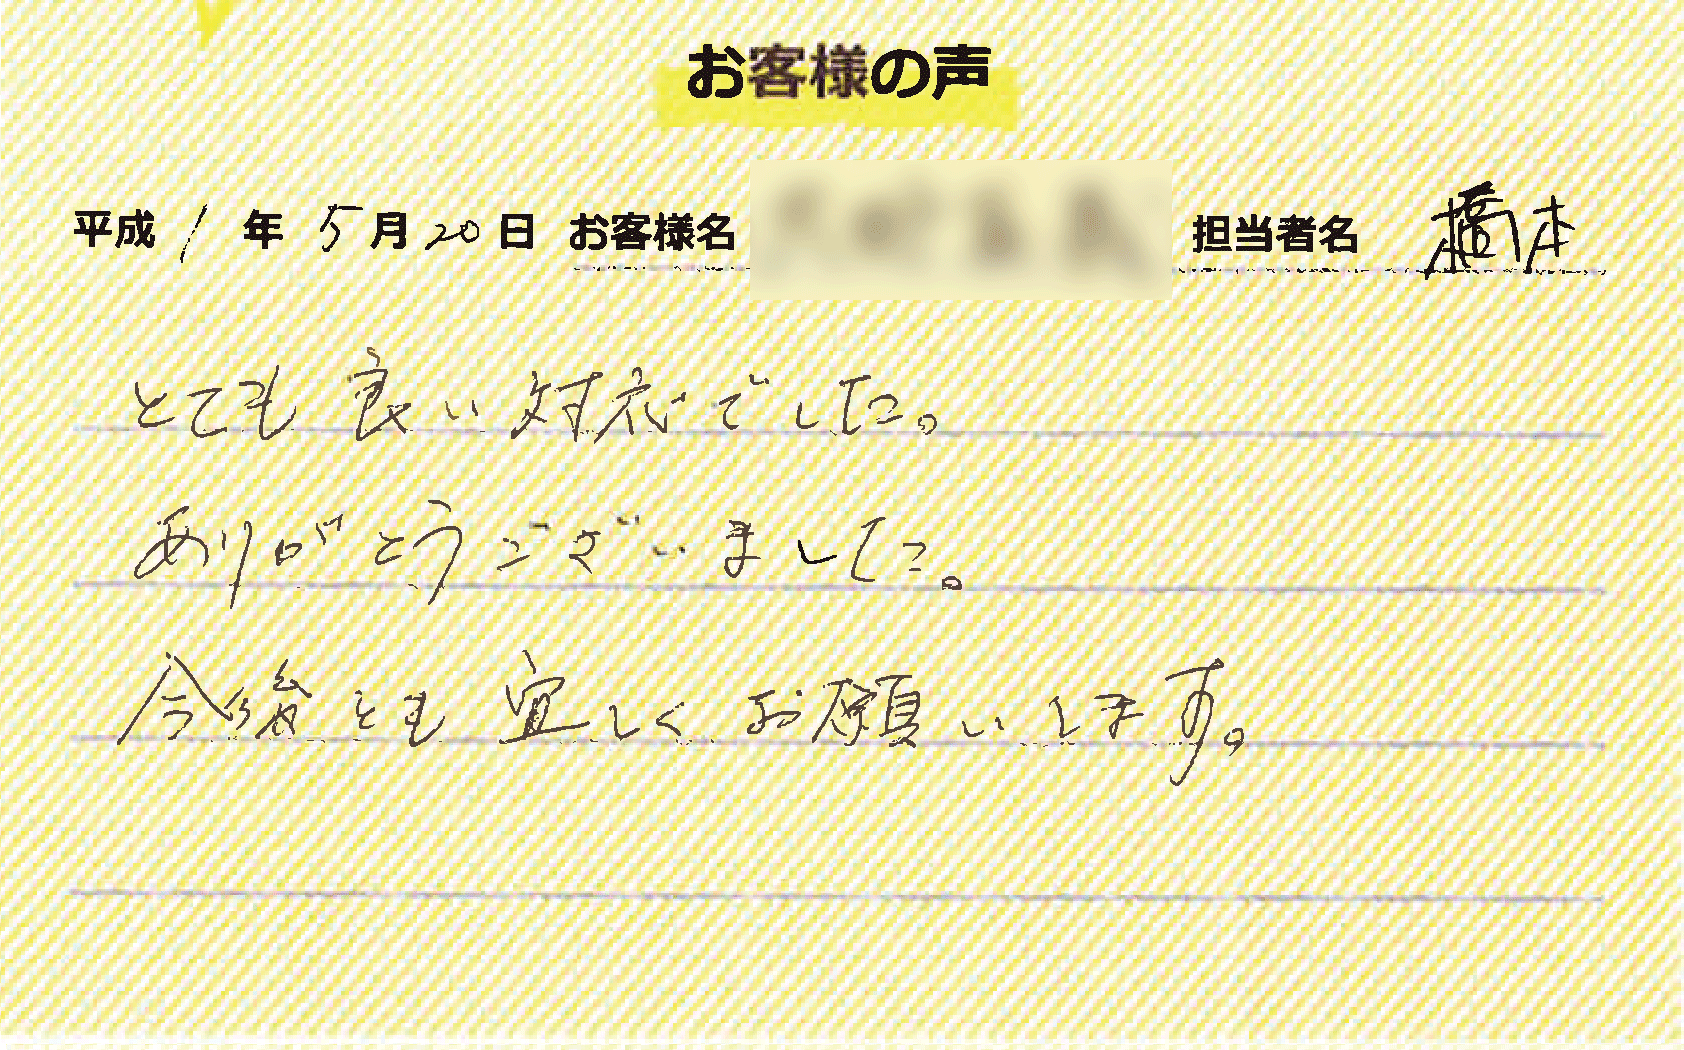 お客様の声
平成1年5月20日 お客様名 担当者名 橋本
とても良い対応でした。
ありがとうございました。
今後とも宜しくお願いします。